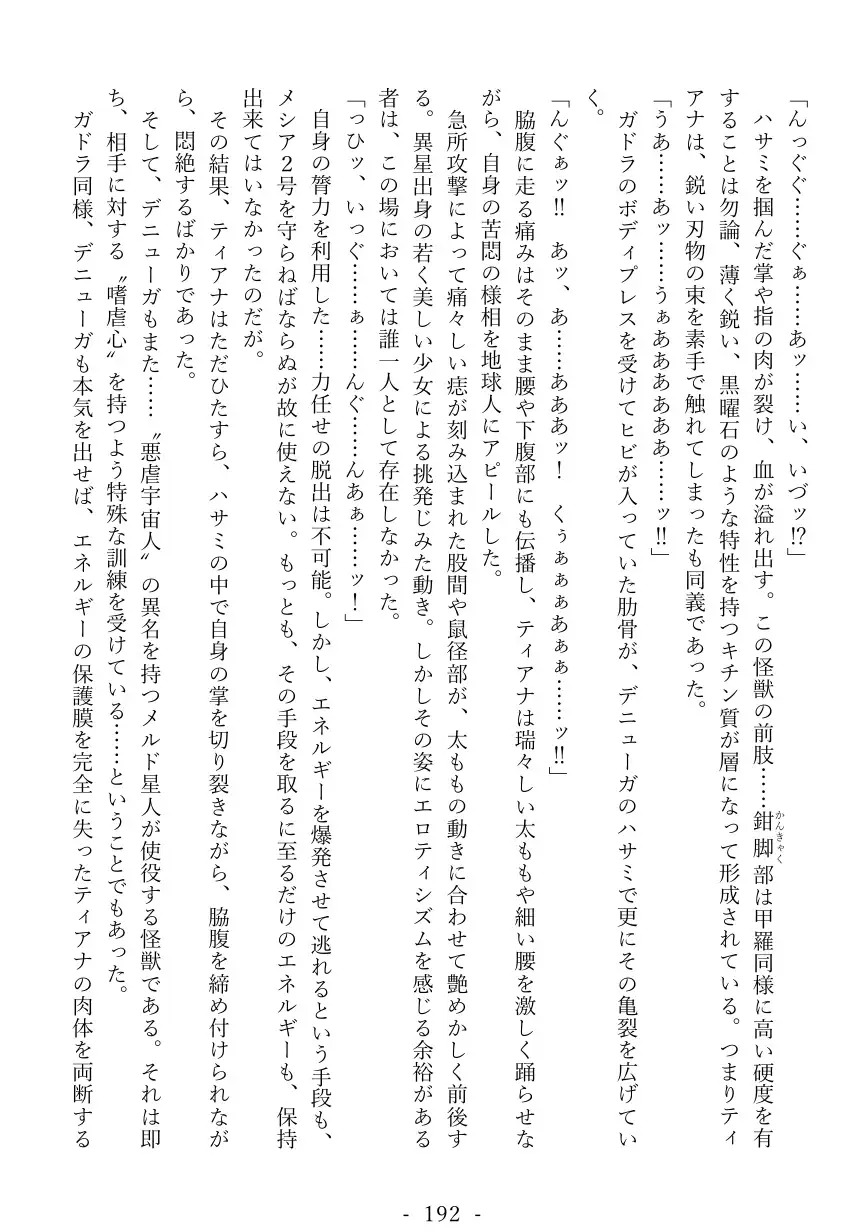 「んっぐぐ……ぐぁ……あッ……い、いづッ!?」
ハサミを掴んだ掌や指の肉が裂け、血が溢れ出す。この怪獣の前肢……鉗脚部は甲羅同様に高い硬度を有
かんきゃく
することは勿論、薄く鋭い、黒曜石のような特性を持つキチン質が層になって形成されている。つまりティ
アナは、鋭い刃物の束を素手で触れてしまったも同義であった。
「うあ……あッ……うぁあああああ……ッ!!」
ガドラのボディプレスを受けてヒビが入っていた肋骨が、デニューガのハサミで更にその亀裂を広げてい
く。
「んぐぁッ!!　あッ、あ……あああッ！　くぅぁぁぁあぁぁ……ッ!!」
脇腹に走る痛みはそのまま腰や下腹部にも伝播し、ティアナは瑞々しい太ももや細い腰を激しく踊らせな
がら、自身の苦悶の様相を地球人にアピールした。
急所攻撃によって痛々しい痣が刻み込まれた股間や鼠径部が、太ももの動きに合わせて艶めかしく前後す
る。異星出身の若く美しい少女による挑発じみた動き。しかしその姿にエロティシズムを感じる余裕がある
者は、この場においては誰一人として存在しなかった。
「っひッ、いっぐ……ぁ……んぐ……んあぁ……ッ！」
自身の膂力を利用した……力任せの脱出は不可能。しかし、エネルギーを爆発させて逃れるという手段も、
メシア２号を守らねばならぬが故に使えない。もっとも、その手段を取るに至るだけのエネルギーも、保持
出来てはいなかったのだが。
その結果、ティアナはただひたすら、ハサミの中で自身の掌を切り裂きながら、脇腹を締め付けられなが
ら、悶絶するばかりであった。
そして、デニューガもまた……〝悪虐宇宙人〟の異名を持つメルド星人が使役する怪獣である。それは即
ち、相手に対する〝嗜虐心〟を持つよう特殊な訓練を受けている……ということでもあった。
ガドラ同様、デニューガも本気を出せば、エネルギーの保護膜を完全に失ったティアナの肉体を両断する
- 192 -